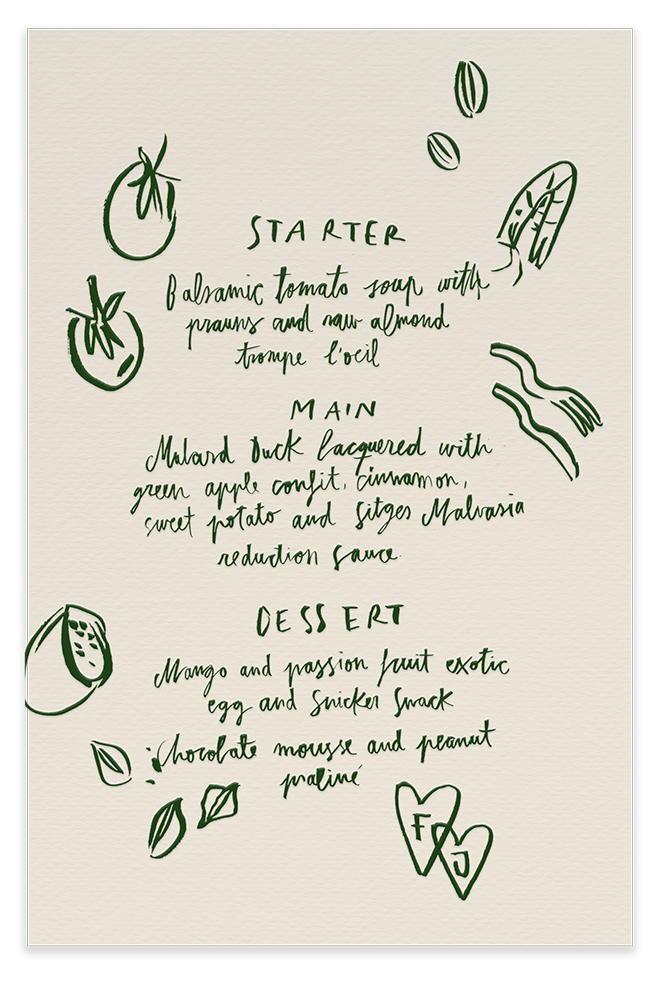 STARTER
Balsamic tomato soup with
prawns and raw almond
trompe l'oeil
MAIN
Mulard Duck lacquered with
green apple confit, cinnamon,
sweet potato and Sitges Malvasia
reduction sauce.
DESSERT
Mango and passion fruit exotic
egg and Snicker Snack
Chocolate mousse and peanut
praliné
F
J